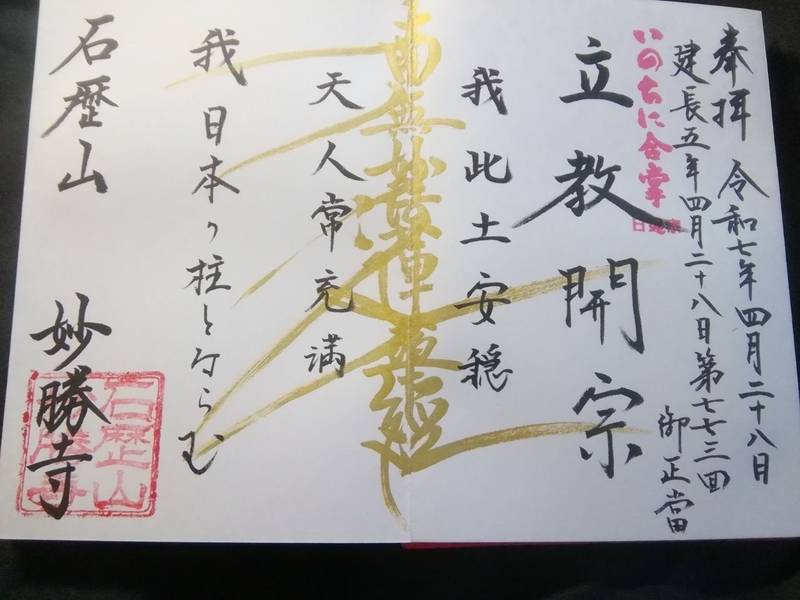 奉拝 令和七年四月二十八日
建長五年四月二十八日第七七三回
御正當
いのちに合掌
日蓮宗
立教開宗
我此土安穏
南無妙法蓮華経
天人常充満
我日本の柱とならむ
石歴山 妙勝寺
石歴山
妙勝寺